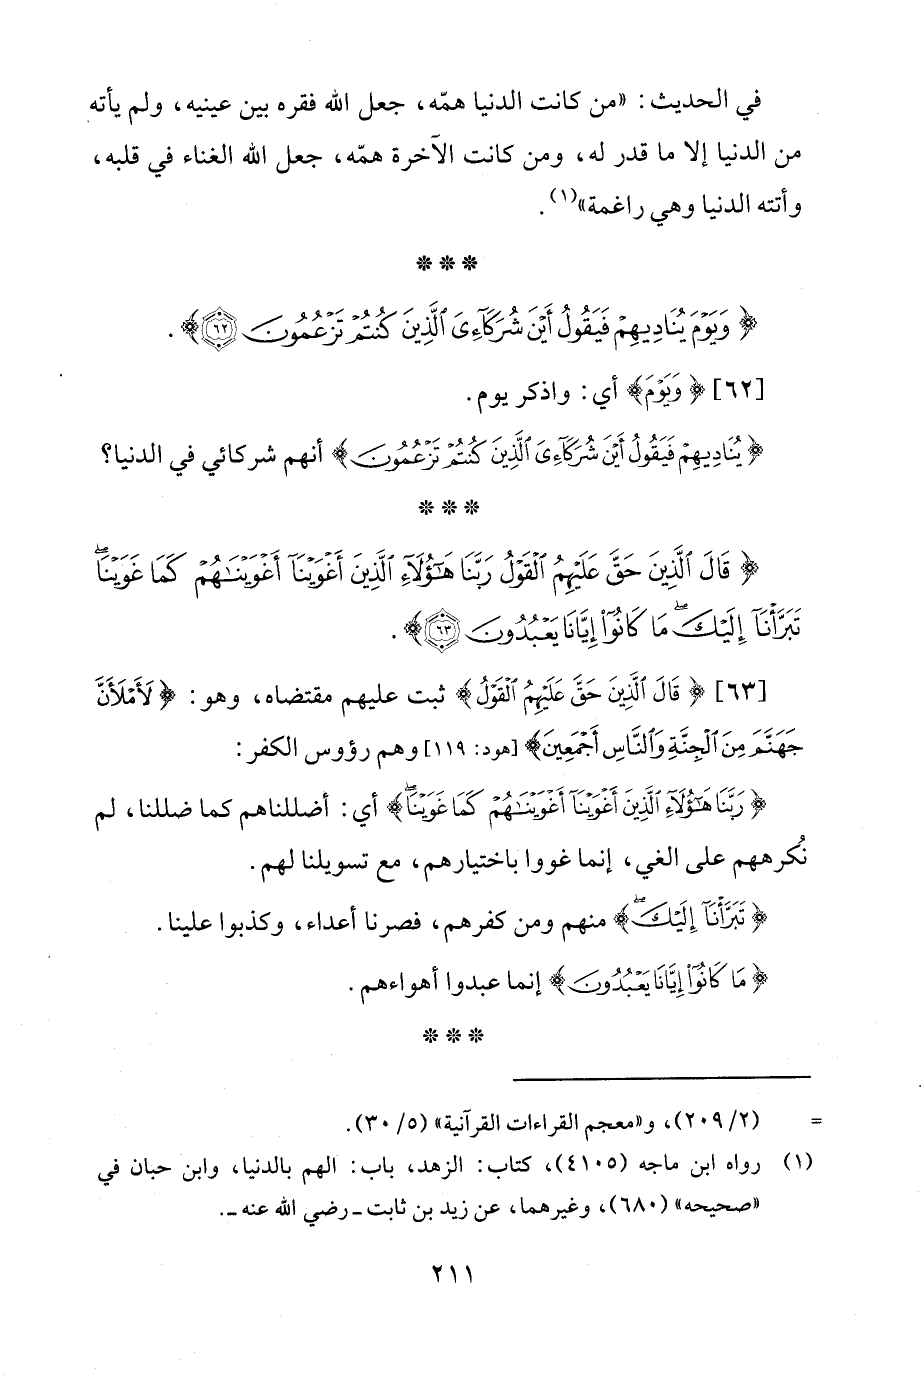 في الحديث: «من كانت الدنيا همّه، جعل الله فقره بين عينيه، ولم يأته
من الدنيا إلا ما قدر له، ومن كانت الآخرة همّه، جعل الله الغناء في قلبه،
وأتته الدنيا وهي راغمة»(١).
* * *
﴿وَيَوْمَ يُنَادِيهِمْ فَيَقُولُ أَيْنَ شُرَكَآءِىَ ٱلَّذِينَ كُنتُمْ تَزْعُمُونَ ٦٢﴾.
[٦٢] ﴿وَيَوْمَ﴾ أي: واذكر يوم.
﴿يُنَادِيهِمْ فَيَقُولُ أَيْنَ شُرَكَآءِىَ ٱلَّذِينَ كُنتُمْ تَزْعُمُونَ﴾ أنهم شركائي في الدنيا؟
* * *
﴿قَالَ ٱلَّذِينَ حَقَّ عَلَيْهِمُ ٱلْقَوْلُ رَبَّنَا هَٰٓؤُلَآءِ ٱلَّذِينَ أَغْوَيْنَآ أَغْوَيْنَٰهُمْ كَمَا غَوَيْنَا ۖ
تَبَرَّأْنَآ إِلَيْكَ ۖ مَا كَانُوٓا۟ إِيَّانَا يَعْبُدُونَ ٦٣﴾.
[٦٣] ﴿قَالَ ٱلَّذِينَ حَقَّ عَلَيْهِمُ ٱلْقَوْلُ﴾ ثبت عليهم مقتضاه، وهو: ﴿لَأَمْلَأَنَّ
جَهَنَّمَ مِنَ ٱلْجِنَّةِ وَٱلنَّاسِ أَجْمَعِينَ﴾ [هود: ١١٩] وهم رؤوس الكفر:
﴿رَبَّنَا هَٰٓؤُلَآءِ ٱلَّذِينَ أَغْوَيْنَآ أَغْوَيْنَٰهُمْ كَمَا غَوَيْنَا ۖ﴾ أي: أضللناهم كما ضللنا، لم
نُكرههم على الغي، إنما غووا باختيارهم، مع تسويلنا لهم.
﴿تَبَرَّأْنَآ إِلَيْكَ ۖ﴾ منهم ومن كفرهم، فصرنا أعداء، وكذبوا علينا.
﴿مَا كَانُوٓا۟ إِيَّانَا يَعْبُدُونَ﴾ إنما عبدوا أهواءهم.
* * *
= (٢/٢٠٩)، و«معجم القراءات القرآنية» (٥/٣٠).
(١) رواه ابن ماجه (٤١٠٥)، كتاب: الزهد، باب: الهم بالدنيا، وابن حبان في
«صحيحه» (٦٨٠)، وغيرهما، عن زيد بن ثابت ـ رضي الله عنه ـ.
٢١١